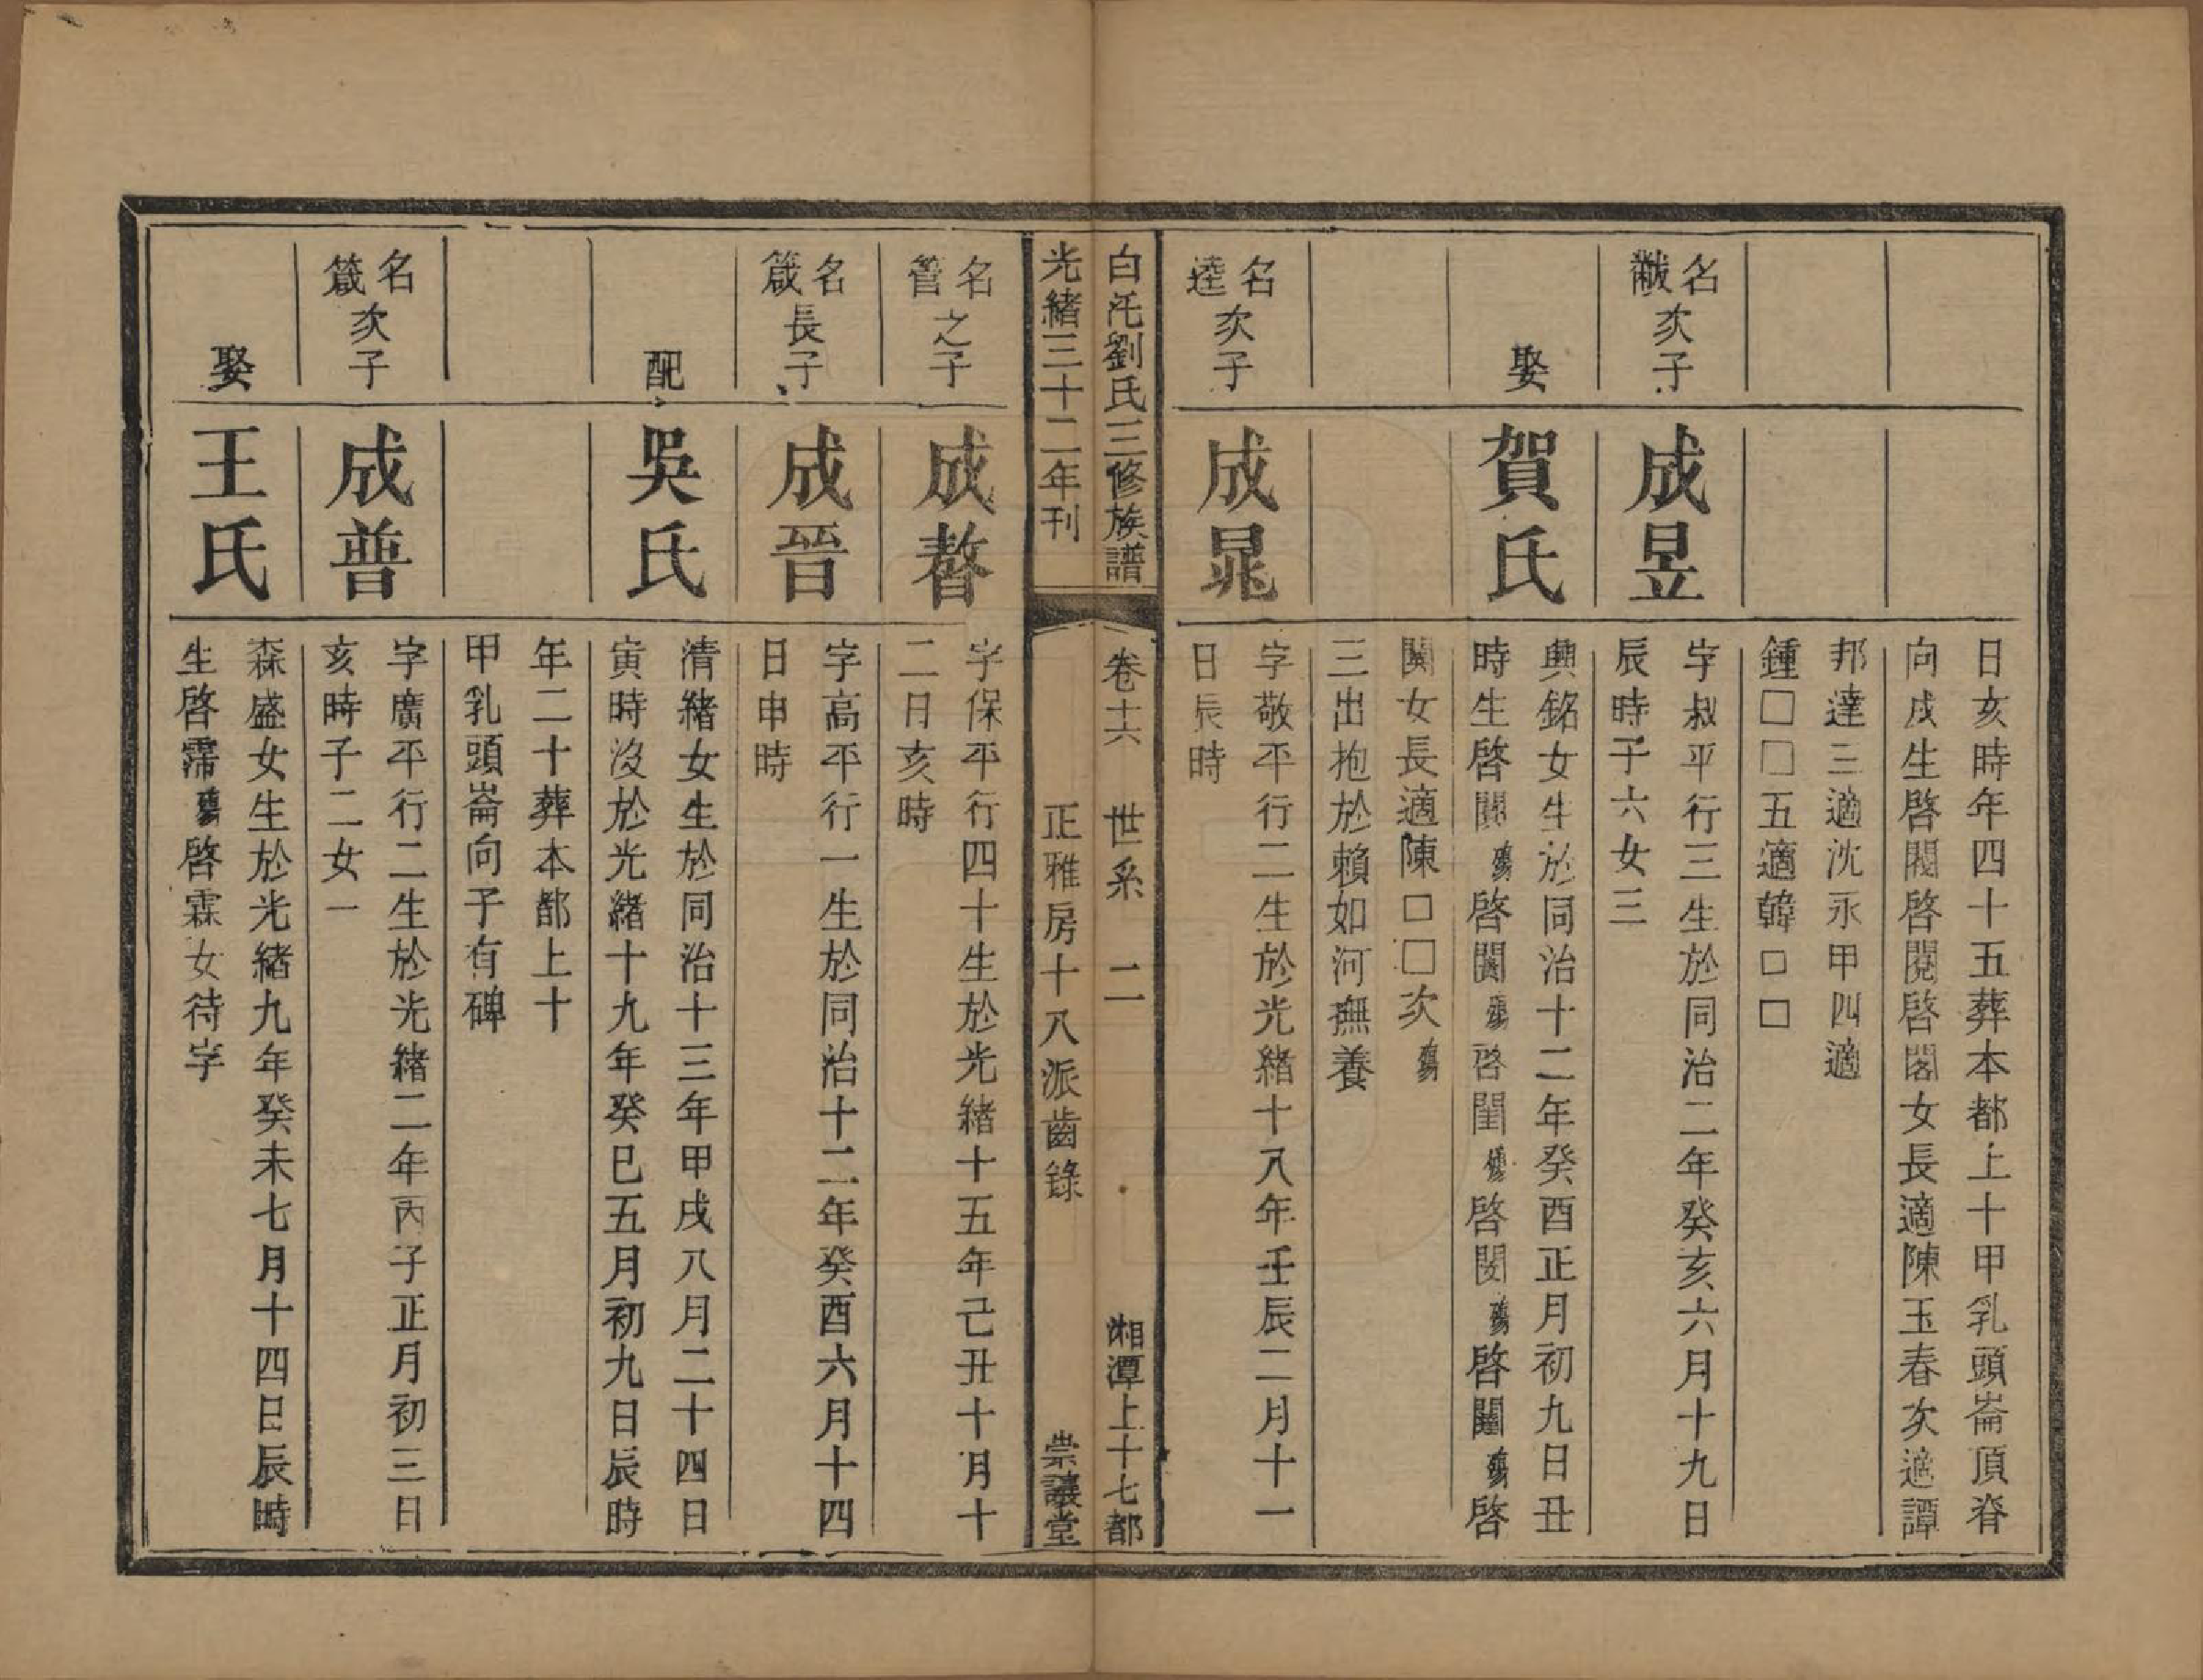 日亥時年四十五葬本都上十甲乳頭崙頂脊
向戌生啓閥啓閱啓閣女長適陳玉春次適譚
邦達三適沈永甲四適
鍾□□五適韓□□
名黻次子
成昱
字叔平行三生於同治二年癸亥六月十九日
辰時子六女三
娶
賀氏
興銘女生於同治十二年癸酉正月初九日丑
時生啓閞殤啓闐殤啓閨殤啓閔殤啓闓殤啓
闐女長適陳□□次殤
三出抱於賴如河撫養
名逵次子
成晁
字敬平行二生於光緒十八年壬辰二月十一
日辰時
白沲劉氏三修族譜
卷十六 世系 二
湘潭上十七都
光緒三十二年刊
正雅房十八派齒錄
崇讓堂
名管之子
成暓
字保平行四十生於光緒十五年己丑十月十
二日亥時
名箴長子
成晉
字高平行一生於同治十二年癸酉六月十四
日申時
配
吳氏
清緒女生於同治十三年甲戌八月二十四日
寅時沒於光緒十九年癸巳五月初九日辰時
年二十葬本都上十
甲乳頭崙向子有碑
名箴次子
成普
字廣平行二生於光緒二年丙子正月初三日
亥時子二女一
娶
王氏
森盛女生於光緒九年癸未七月十四日辰時
生啓霈殤啓霖女待字